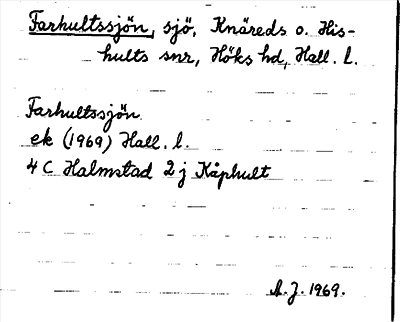 Farhultssjön, sjö, Knäreds o. His-
hults snr, Höks hd, Hall. l.
Farhultssjön
ek (1969) Hall. l.
4 C Halmstad 2 j Kåphult
A.J. 1969.